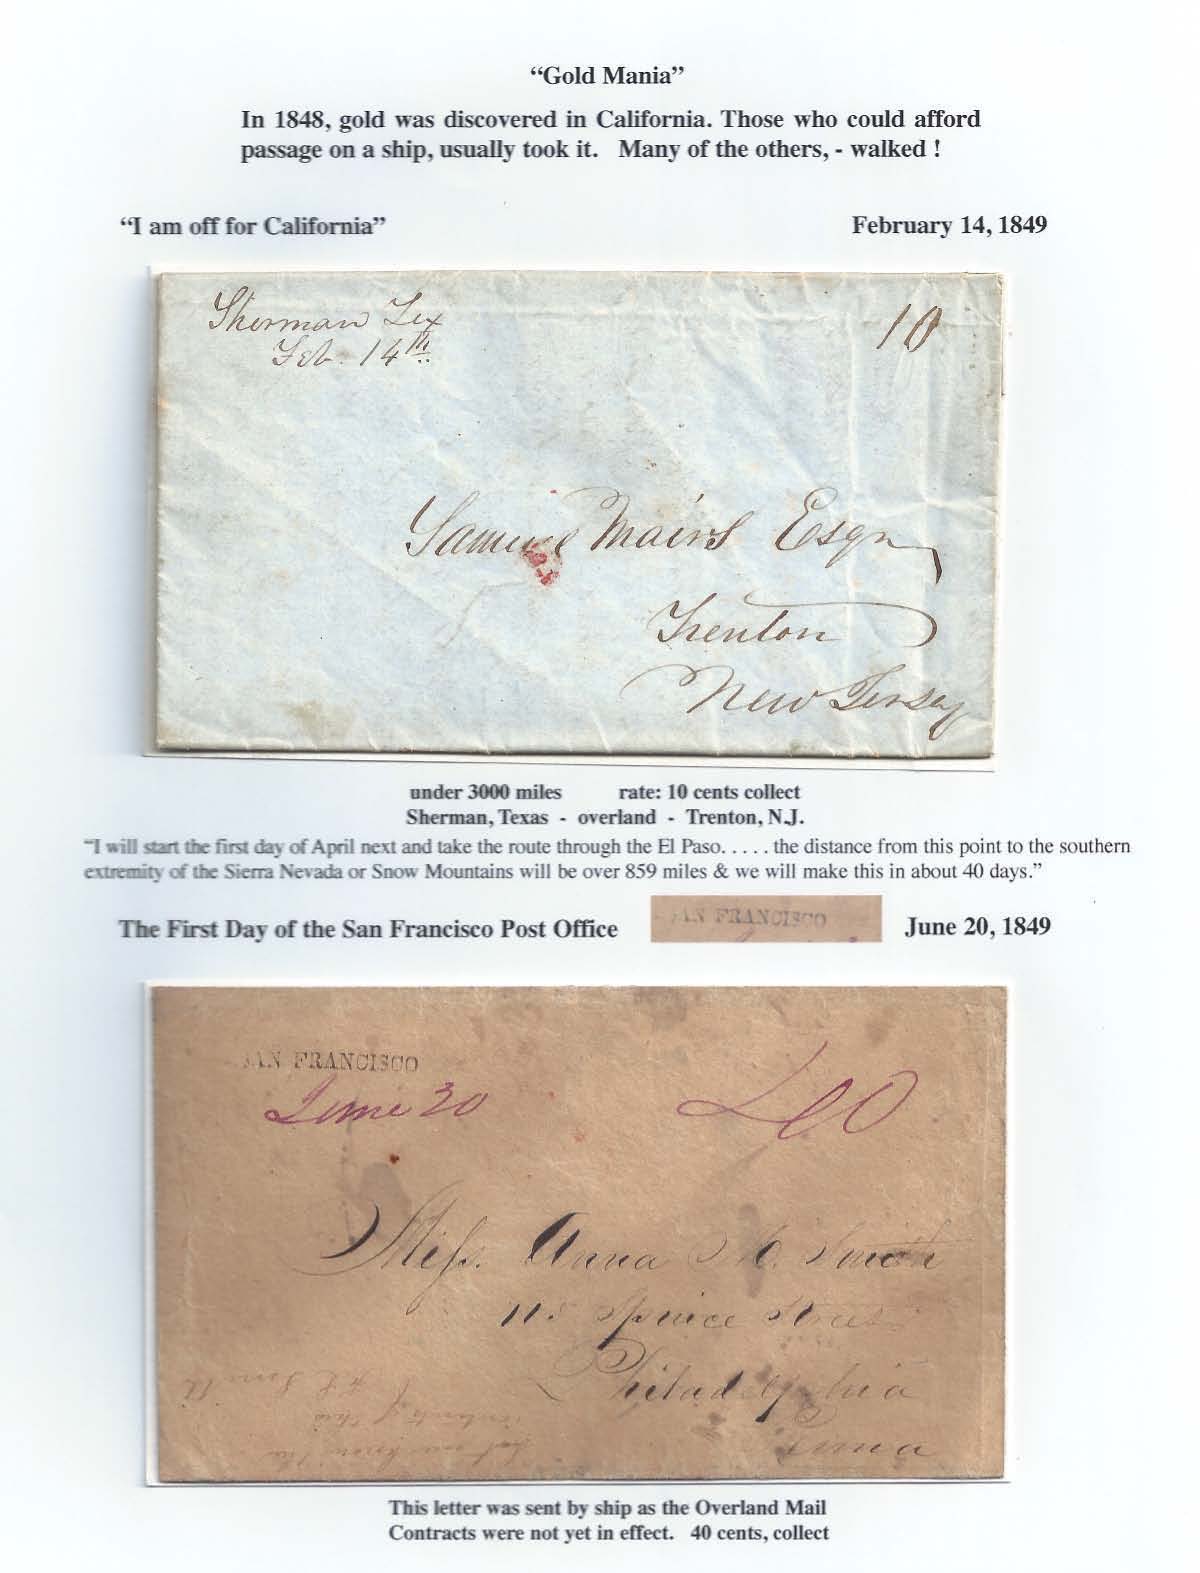 “Gold Mania”
In 1848, gold was discovered in California. Those who could afford
passage on a ship, usually took it. Many of the others, - walked !
“I am off for California” February 14, 1849
Sherman Tex 10
Feb. 14th
Samuel Mairs Esqr
Trenton
New Jersey
under 3000 miles rate: 10 cents collect
Sherman, Texas - overland - Trenton, N.J.
“I will start the first day of April next and take the route through the El Paso. . . . . the distance from this point to the southern
extremity of the Sierra Nevada or Snow Mountains will be over 859 miles & we will make this in about 40 days.”
The First Day of the San Francisco Post Office SAN FRANCISCO June 20, 1849
SAN FRANCISCO
June 20 40
Miss. Anna M. Smith
115 Spruce Street
Philadelphia
Penna
This letter was sent by ship as the Overland Mail
Contracts were not yet in effect. 40 cents, collect